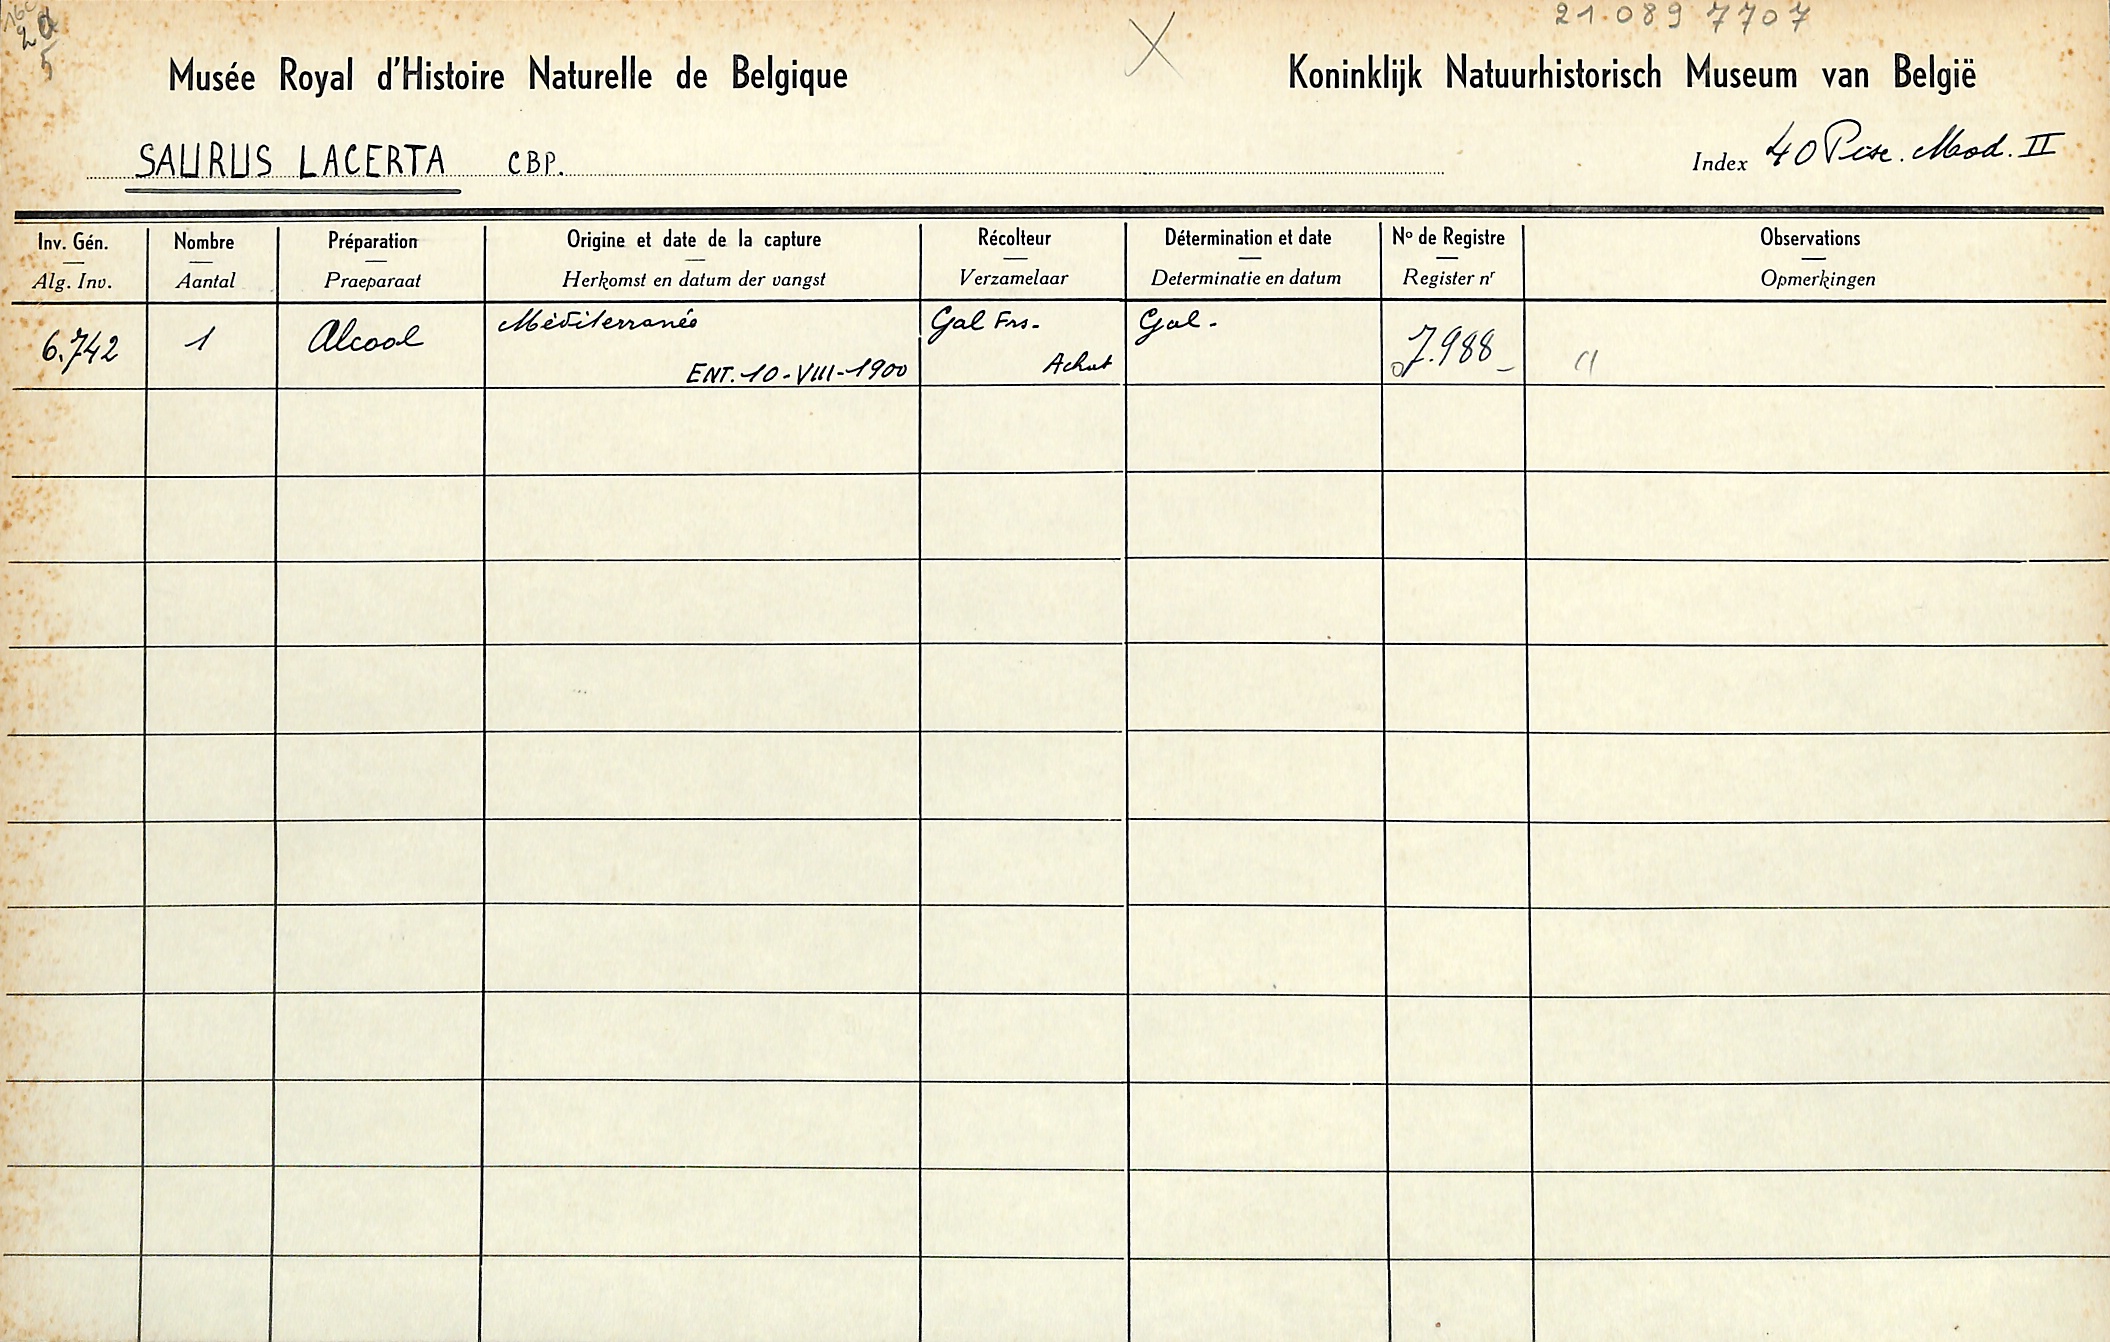 21 089 7707
2
5
Musée Royal d'Histoire Naturelle de Belgique
Koninklijk Natuurhistorisch Museum van België
SAURUS LACERTA CBP.
Index 40 Pisc. Mod. II
Inv. Gén. Nombre Préparation Origine et date de la capture Récolteur Détermination et date Nº de Registre Observations
Alg. Inv. Aantal Praeparaat Herkomst en datum der vangst Verzamelaar Determinatie en datum Register nr Opmerkingen
6.742 1 Alcool Méditerranée Gal Frs. Gal. 7.988
ENT. 10-VIII-1900 Achat